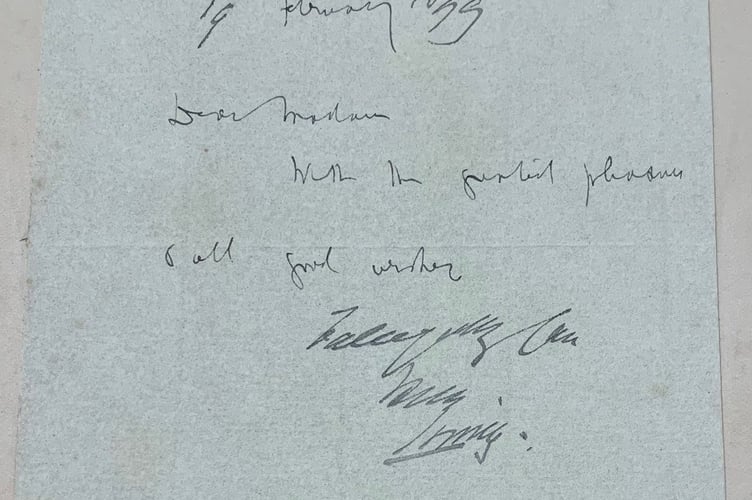 19 February 1899
Dear Madam
With the greatest pleasure
& all good wishes
Irving.